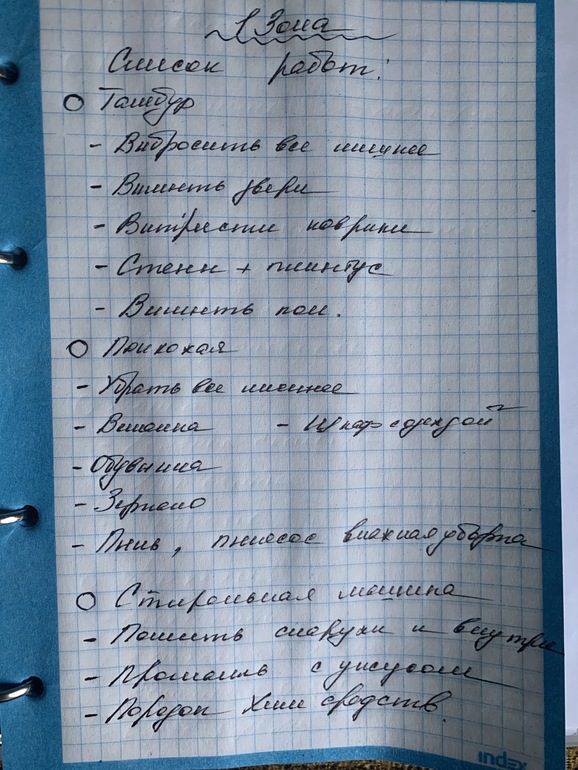 1 Зона
Список работ:
Тамбур
- Выбросить все лишнее
- Вымыть двери
- Вытрясти коврики
- Стены + плинтус
- Вымыть пол.
Прихожая
- Убрать все лишнее
- Вешалка - Шкаф с одеждой
- Обувница
- Зеркало
- пылесос влажная уборка
Стиральная машина
- Помыть снаружи и внутри
- с уксусом
- Порядок хим средств.
index